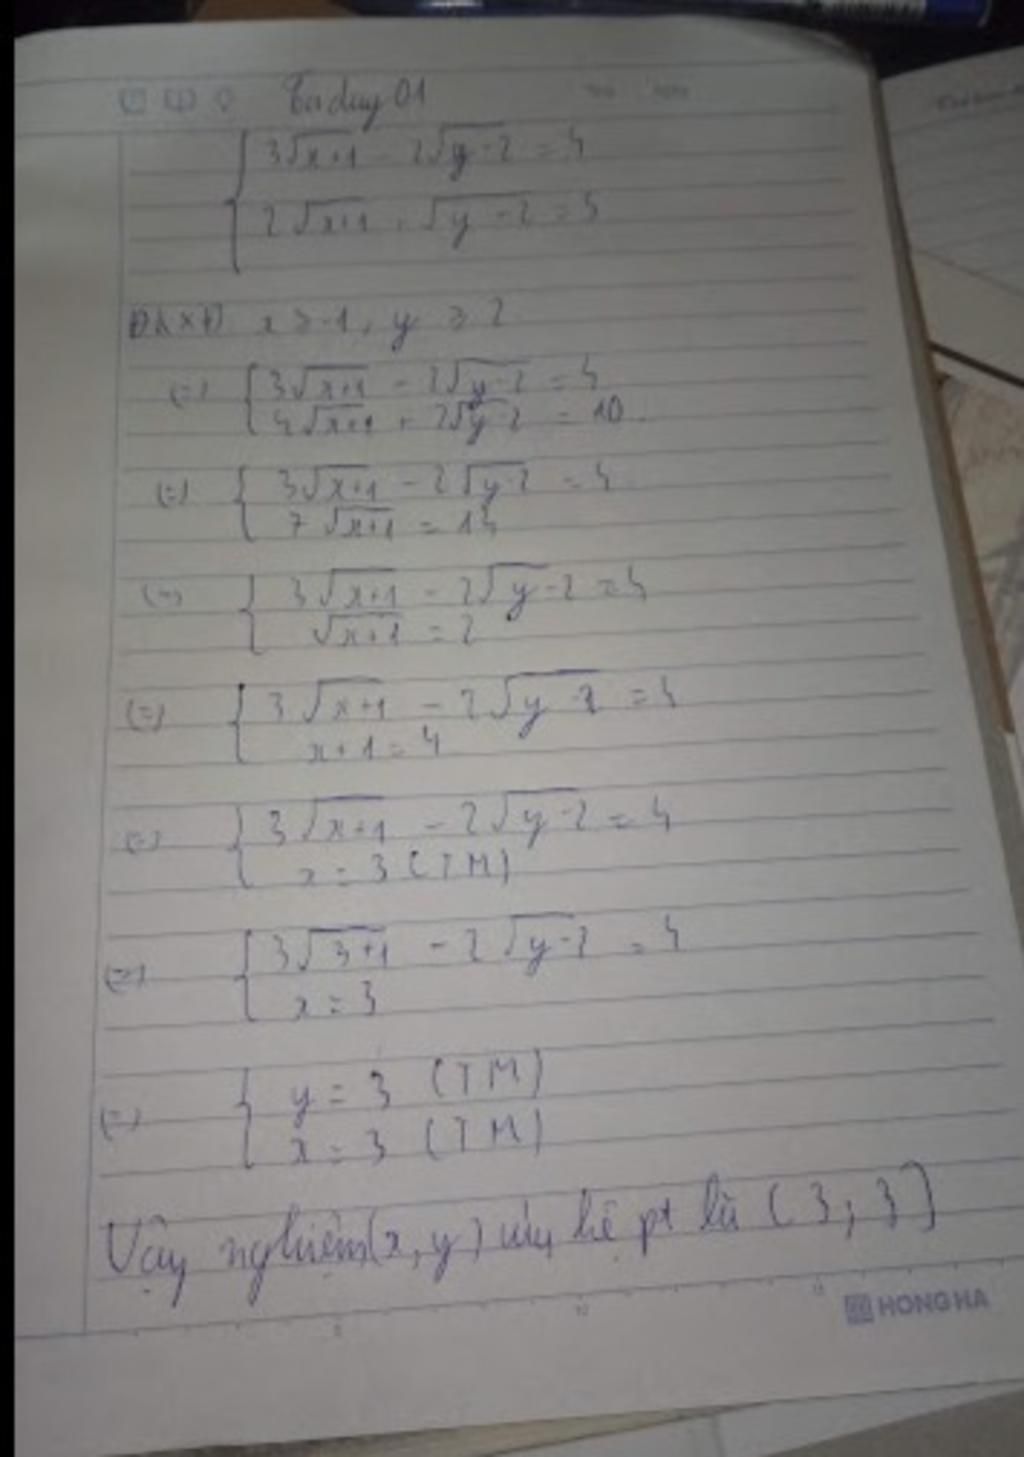 Today 01
3√x+1 - 2√y-2 = 4
2√x+1 + √y-2 = 5
ĐKXĐ x ≥ -1, y ≥ 2
(=) 3√x+1 - 2√y-2 = 4
4√x+1 + 2√y-2 = 10
(=) 3√x+1 - 2√y-2 = 4
7√x+1 = 14
(=) 3√x+1 - 2√y-2 = 4
√x+1 = 2
(=) 3√x+1 - 2√y-2 = 4
x+1 = 4
(=) 3√x+1 - 2√y-2 = 4
x = 3 (TM)
(=) 3√3+1 - 2√y-2 = 4
x = 3
(=) y = 3 (TM)
x = 3 (TM)
Vậy nghiệm (x, y) của hệ pt là (3; 3)
HONG HA